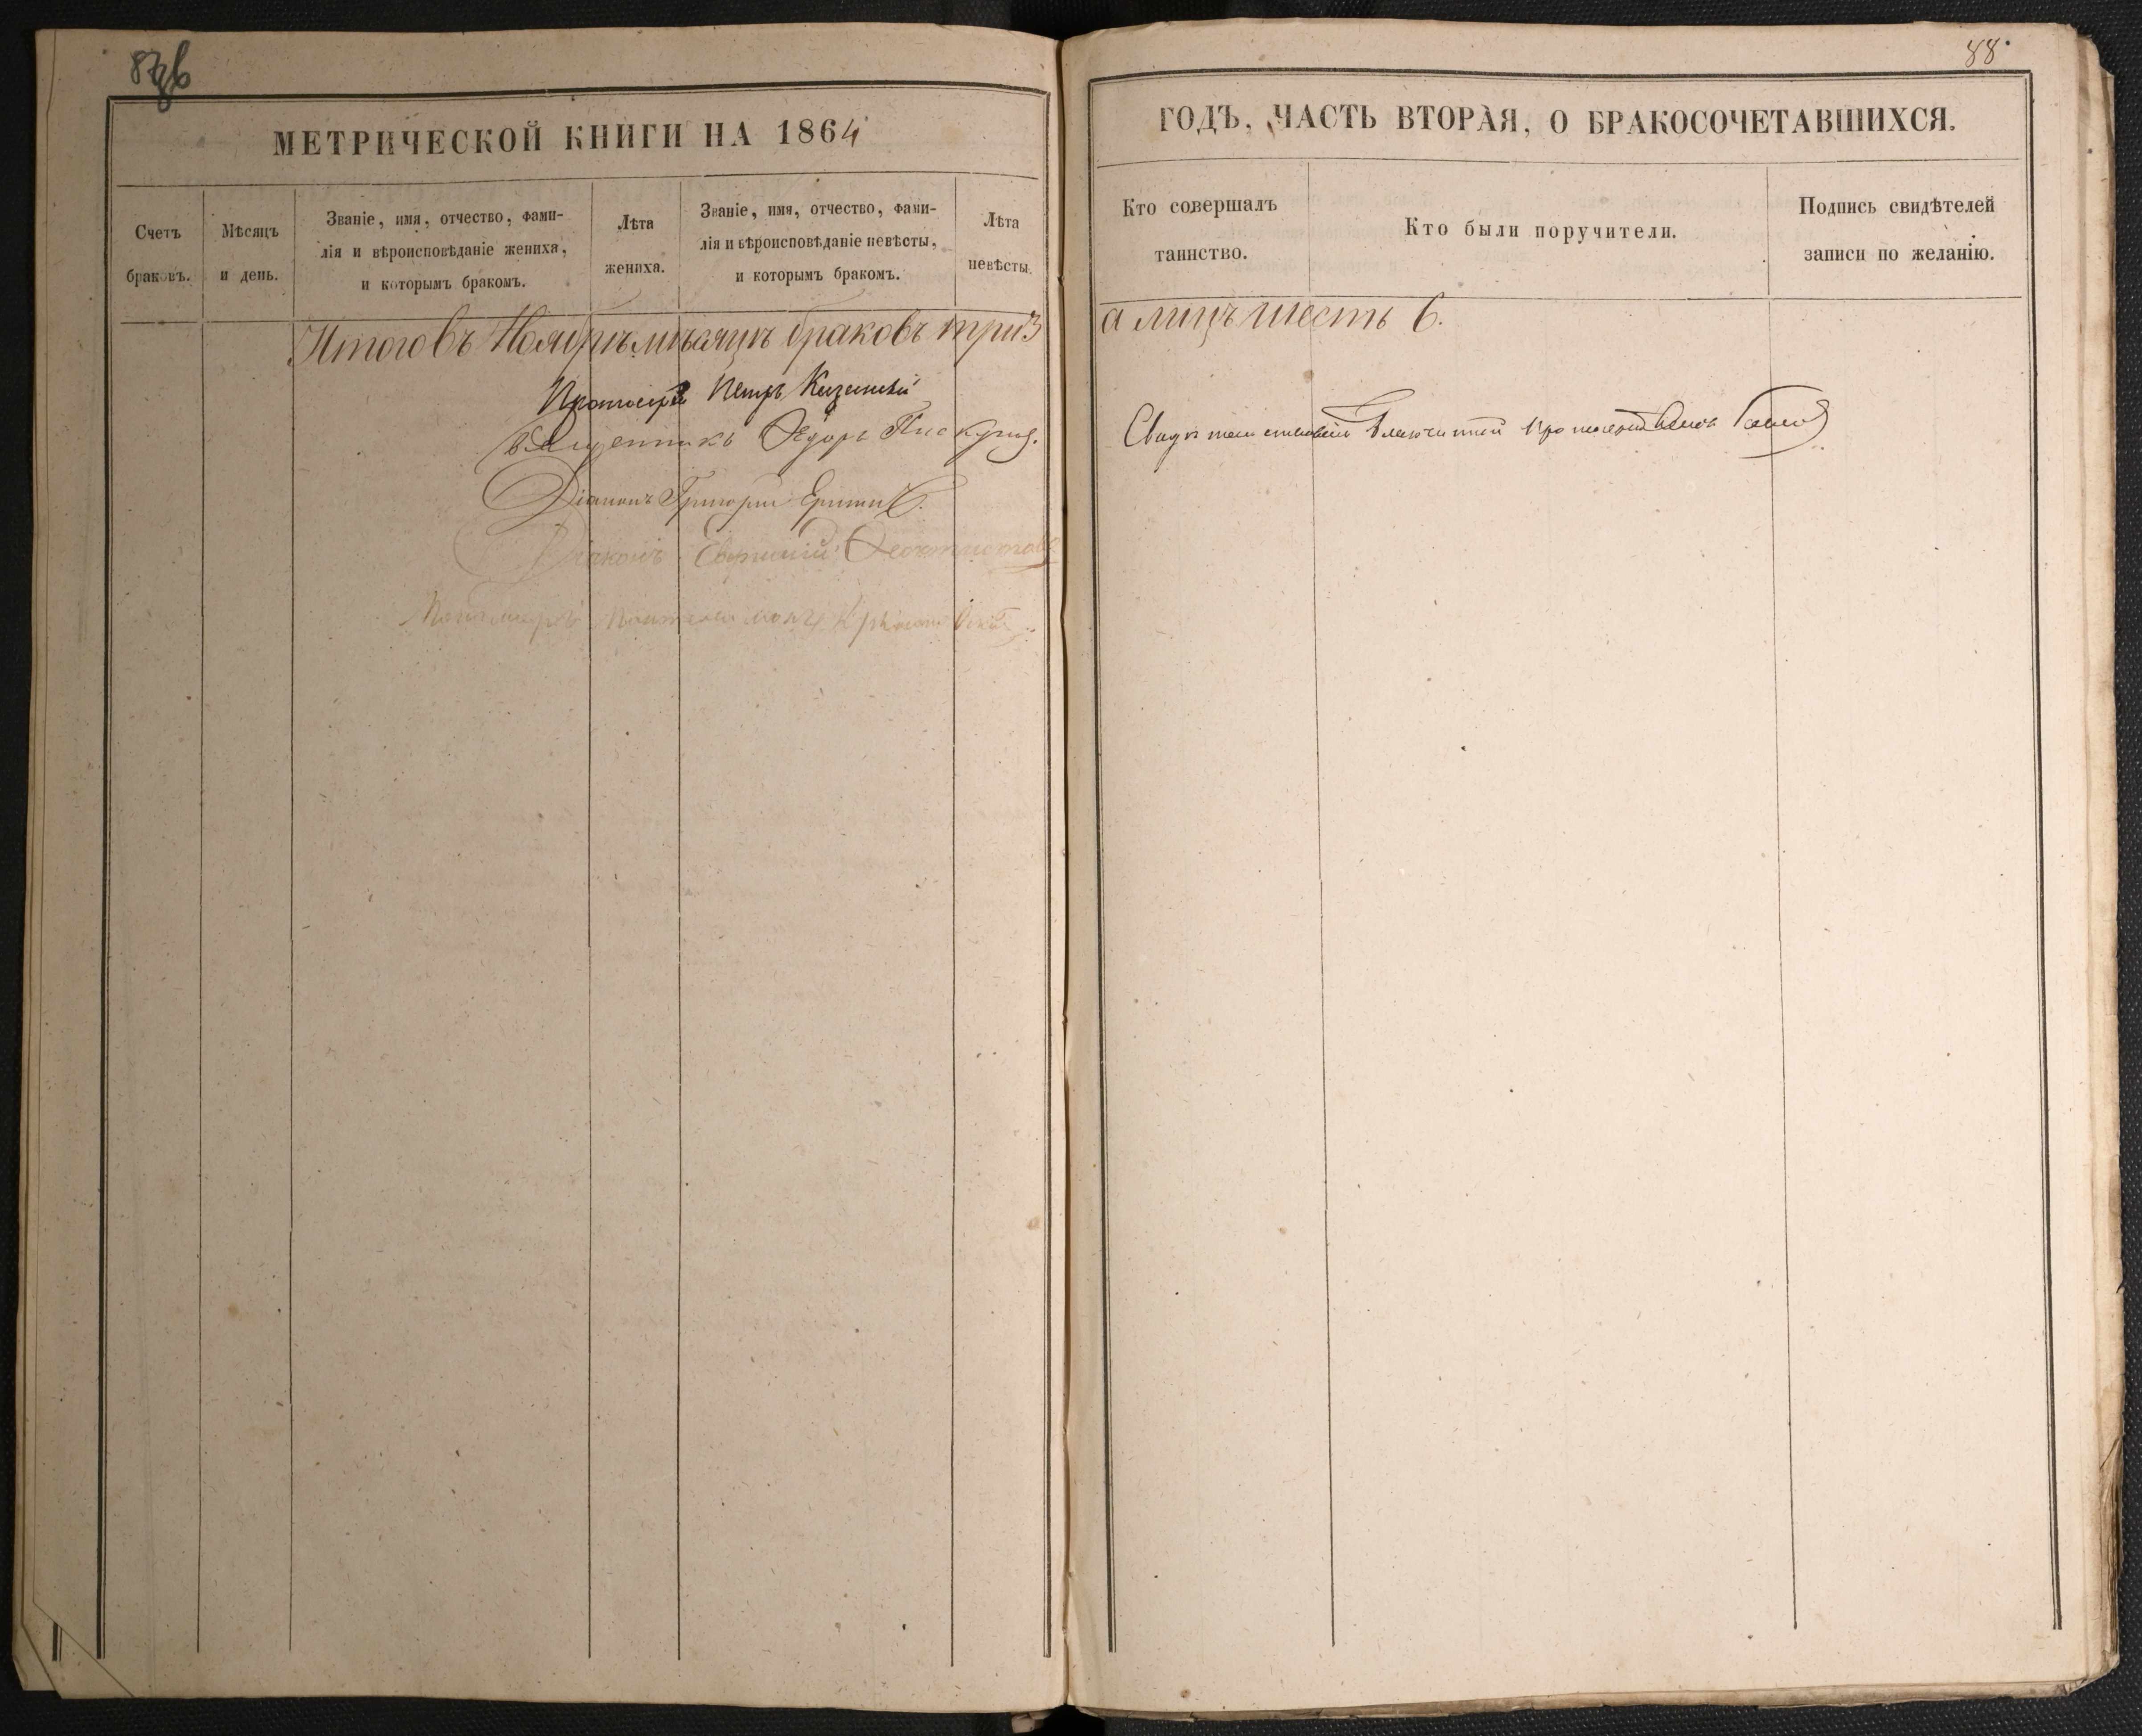 88.
МЕТРИЧЕСКОЙ КНИГИ НА 1864
ГОДЪ, ЧАСТЬ ВТОРАЯ, О БРАКОСОЧЕТАВШИХСЯ.
Счетъ
браковъ.
Мѣсяцъ
и день.
Званіе, имя, отчество, фами-
лія и вѣроисповѣданіе жениха,
и которымъ бракомъ.
Лѣта
жениха.
Званіе, имя, отчество, фами-
лія и вѣроисповѣданіе невѣсты,
и которымъ бракомъ.
Лѣта
невѣсты.
Кто совершалъ
таинство.
Кто были поручители.
Подпись свидѣтелей
записи по желанію.
Итого въ Ноябрѣ мѣсяцѣ браковъ три 3
а лицъ шесть 6.
Протоіерей Петръ
Священникъ Ѳедоръ
Діаконъ Григорій
Діаконъ Евгеній Ѳеоктистовъ
Благочинный Протоіерей